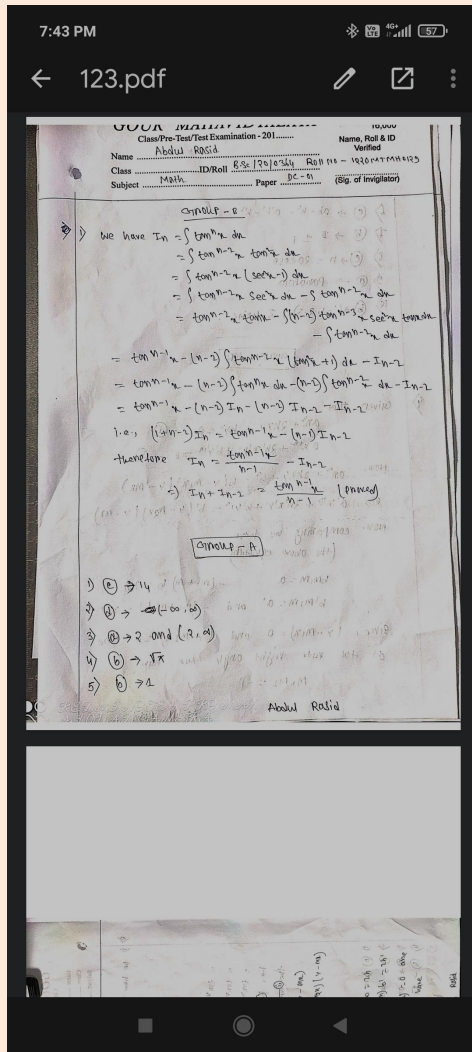 7:43 PM
4G+
Vo LTE
57
123.pdf
GOUR MAHAVIDYALAYA
10,000
Class/Pre-Test/Test Examination - 201........
Name, Roll & ID
Verified
Name Abdul Rasid
Class ID/Roll B.Sc/20/0364 Roll No -
Subject Math Paper DC-01
(Sig. of Invigilator)
Group - B
1) We have In = ∫ tanⁿx dx
= ∫ tanⁿ⁻²x tan²x dx
= ∫ tanⁿ⁻²x (sec²x-1) dx
= ∫ tanⁿ⁻²x sec²x dx - ∫ tanⁿ⁻²x dx
= tanⁿ⁻²x tanx - ∫(n-2) tanⁿ⁻³x sec²x tanx dx
- ∫ tanⁿ⁻²x dx
= tanⁿ⁻¹x - (n-2) ∫ tanⁿ⁻²x (tan²x + 1) dx - In-2
= tanⁿ⁻¹x - (n-2) ∫ tanⁿx dx - (n-2) ∫ tanⁿ⁻²x dx - In-2
= tanⁿ⁻¹x - (n-2) In - (n-2) In-2 - In-2
i.e., (1+n-2) In = tanⁿ⁻¹x - (n-1) In-2
therefore In = tanⁿ⁻¹x / n-1 - In-2
⇒ In + In-2 = tanⁿ⁻¹x / n-1 (proved)
Group - A
1) → 14
2) d → (-∞, ∞)
3) a → 2 and (2, ∞)
4) b → √x
5) b → 1
Abdul Rasid